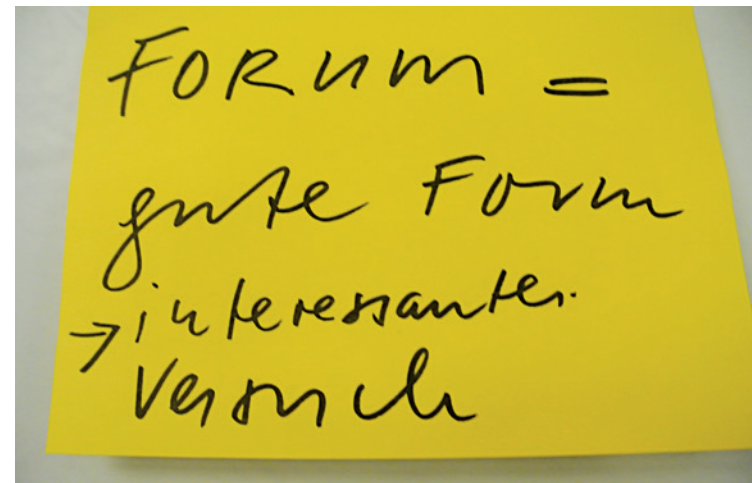 FORUM =
gute Form
→ interessanter
Versuch